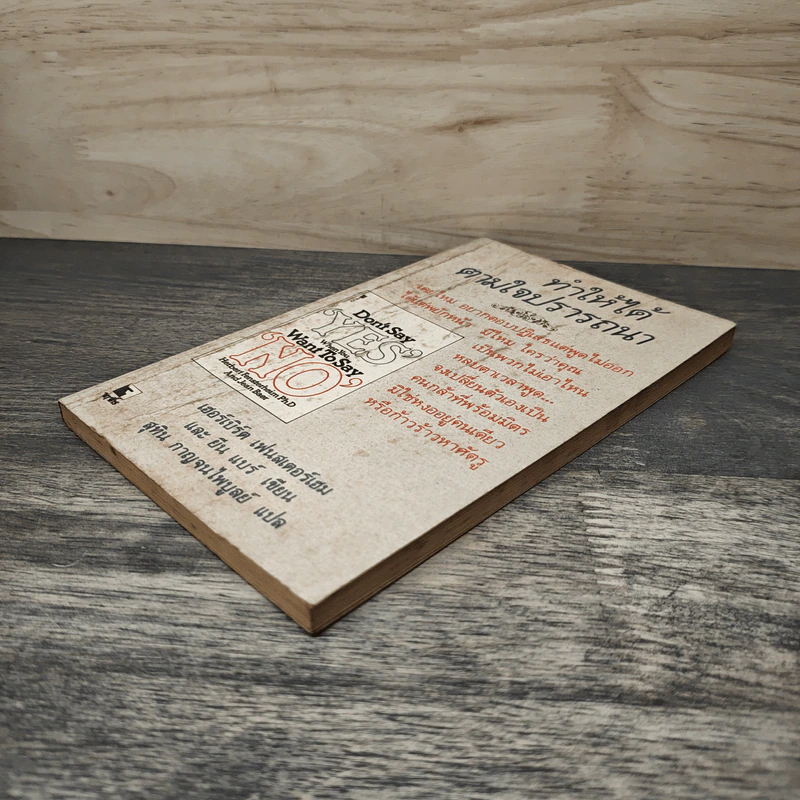 ทำให้ได้
ตามใจปรารถนา
อยากตอบปฏิเสธแต่พูดไม่ออก
มีไหม ใครว่าคุณ
เป็นพวกไม่เอาไหน
หลบตาเวลาพูด...
จงเปลี่ยนตัวเองเป็น
คนกล้าที่พร้อมมิตร
มิใช่หงออยู่คนเดียว
หรือก้าวร้าวหาศัตรู
Don't Say
'YES'
When You
Want To Say
'NO'
Herbert Fensterheim Ph.D.
And Jean Baer
เฮอร์เบิร์ต เฟนสเตอร์เฮม
และ ยีน แบร์ เขียน
สุทิน กาญจนไพบูลย์ แปล